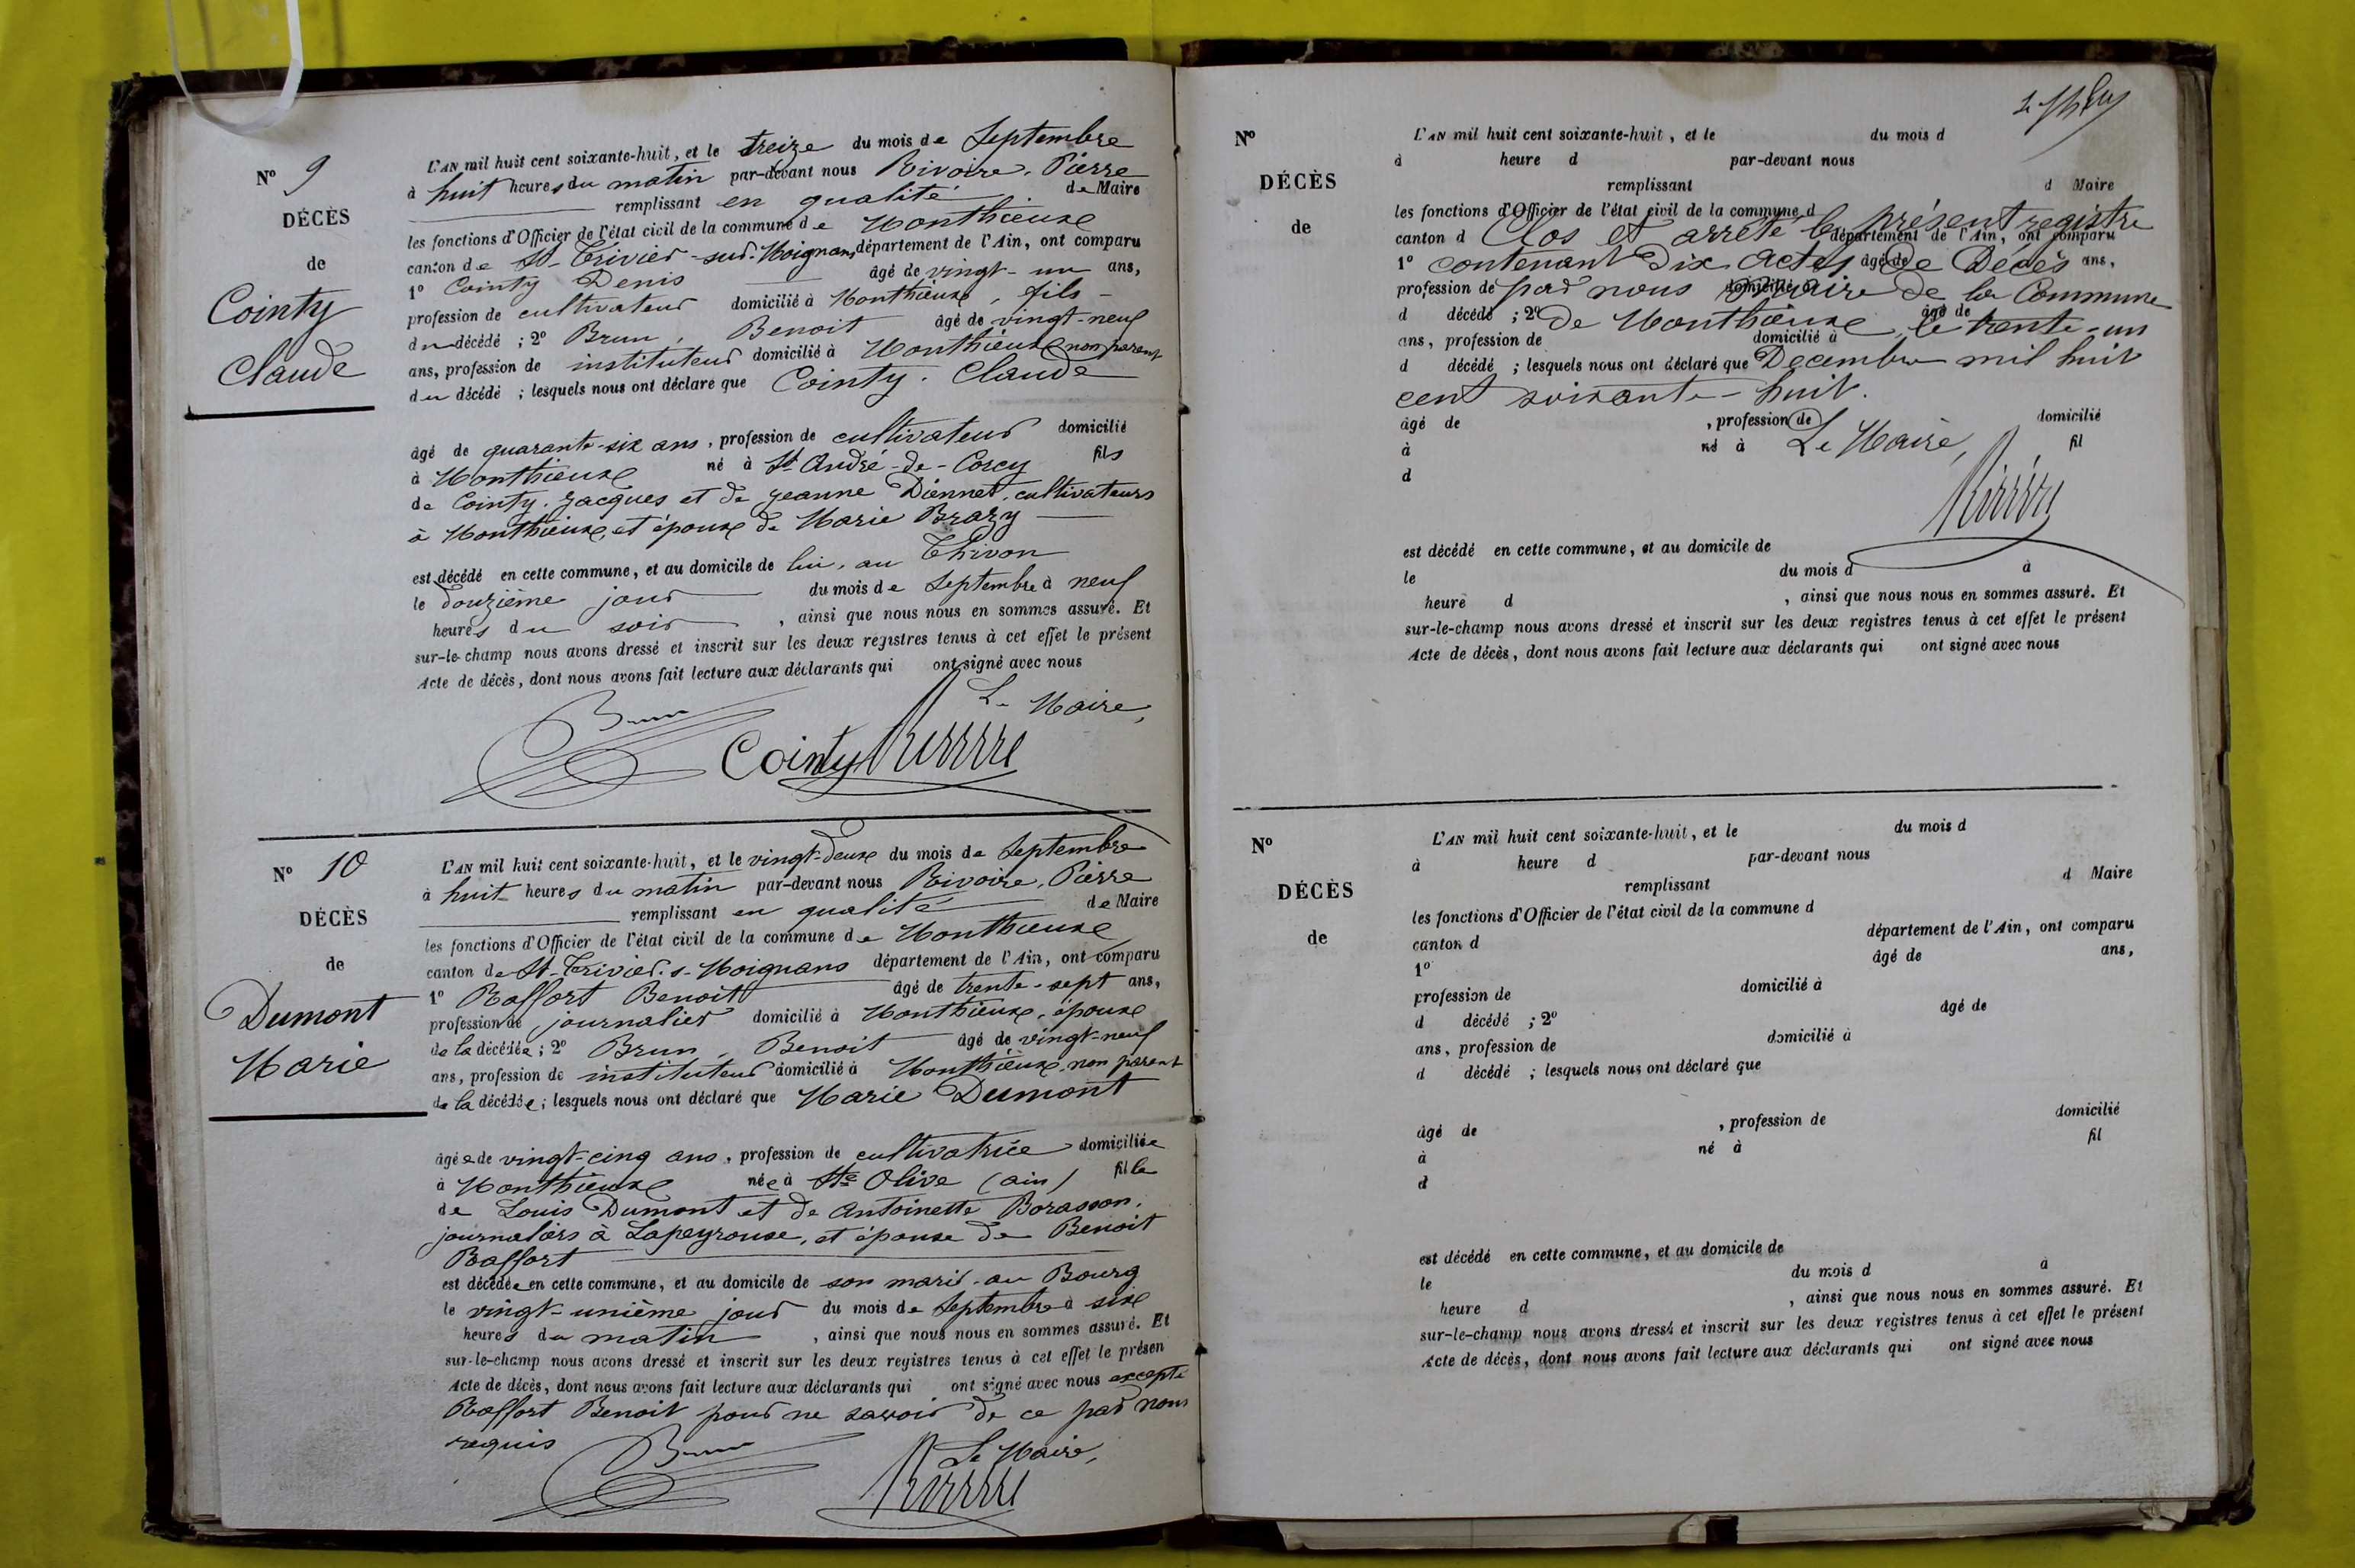 Nº 9
DÉCÈS
de
Cointy
Claude
L'AN mil huit cent soixante-huit, et le treize du mois de Septembre
à huit heures du matin par-devant nous Rivoire, Pierre
remplissant en qualité de Maire
les fonctions d'Officier de l'état civil de la commune de Monthieux
canton de St-Trivier-sur-Moignans département de l'Ain, ont comparu
1º Cointy Denis âgé de vingt-un ans,
profession de cultivateur domicilié à Monthieux, fils
du décédé ; 2º Brun, Benoit âgé de vingt-neuf
ans, profession de instituteur domicilié à Monthieux non parent
du décédé ; lesquels nous ont déclaré que Cointy. Claude
âgé de quarante-six ans, profession de cultivateur domicilié
à Monthieux né à St André-de-Corcy fils
de Cointy. Jacques et de Jeanne Diennet, cultivateurs
à Monthieux, et époux de Marie Brazy
est décédé en cette commune, et au domicile de lui, au Thivon
le douzième jour du mois de Septembre à neuf
heures du soir, ainsi que nous nous en sommes assuré. Et
sur-le-champ nous avons dressé et inscrit sur les deux registres tenus à cet effet le présent
Acte de décès, dont nous avons fait lecture aux déclarants qui ont signé avec nous
Le Maire,
Brun Cointy Rivoire
Nº 10
DÉCÈS
de
Dumont
Marie
L'AN mil huit cent soixante-huit, et le vingt-deux du mois de Septembre
à huit heures du matin par-devant nous Rivoire, Pierre
remplissant en qualité de Maire
les fonctions d'Officier de l'état civil de la commune de Monthieux
canton de St-Trivier-s-Moignans département de l'Ain, ont comparu
1º Raffort Benoit âgé de trente-sept ans,
profession de journalier domicilié à Monthieux, époux
de la décédée ; 2º Brun, Benoit âgé de vingt-neuf
ans, profession de instituteur domicilié à Monthieux, non parent
de la décédée ; lesquels nous ont déclaré que Marie Dumont
âgée de vingt-cinq ans, profession de cultivatrice domiciliée
à Monthieux née à Ste Olive (ain) fille
de Louis Dumont et de Antoinette Borasson,
journaliers à Lapeyrouse, et épouse de Benoit
Raffort
est décédée en cette commune, et au domicile de son mari au Bourg
le vingt-unième jour du mois de Septembre à six
heures du matin, ainsi que nous nous en sommes assuré. Et
sur-le-champ nous avons dressé et inscrit sur les deux registres tenus à cet effet le présen
Acte de décès, dont nous avons fait lecture aux déclarants qui ont signé avec nous excepté
Raffort Benoit pour ne savoir de ce par nous
requis
Le Maire,
Brun Rivoire
Nº
DÉCÈS
de
L'AN mil huit cent soixante-huit, et le du mois d
à heure d par-devant nous
remplissant d Maire
les fonctions d'Officier de l'état civil de la commune d
Clos et arrêté le présent registre
canton d département de l'Ain, ont comparu
1º contenant Dix actes de Décès âgé de ans,
profession de domicilié à
par nous Maire de la Commune
d décédé ; 2º âgé de
de Monthieux, le trente-un
ans, profession de domicilié à
d décédé ; lesquels nous ont déclaré que Decembre mil huit
cent soixante-huit.
âgé de , profession de domicilié
à né à fil
Le Maire,
d
Rivoire
est décédé en cette commune, et au domicile de
le du mois d à
heure d , ainsi que nous nous en sommes assuré. Et
sur-le-champ nous avons dressé et inscrit sur les deux registres tenus à cet effet le présent
Acte de décès, dont nous avons fait lecture aux déclarants qui ont signé avec nous
Nº
DÉCÈS
de
L'AN mil huit cent soixante-huit, et le du mois d
à heure d par-devant nous
remplissant d Maire
les fonctions d'Officier de l'état civil de la commune d
canton d département de l'Ain, ont comparu
1º âgé de ans,
profession de domicilié à
d décédé ; 2º âgé de
ans, profession de domicilié à
d décédé ; lesquels nous ont déclaré que
âgé de , profession de domicilié
à né à fil
d
est décédé en cette commune, et au domicile de
le du mois d à
heure d , ainsi que nous nous en sommes assuré. Et
sur-le-champ nous avons dressé et inscrit sur les deux registres tenus à cet effet le présent
Acte de décès, dont nous avons fait lecture aux déclarants qui ont signé avec nous